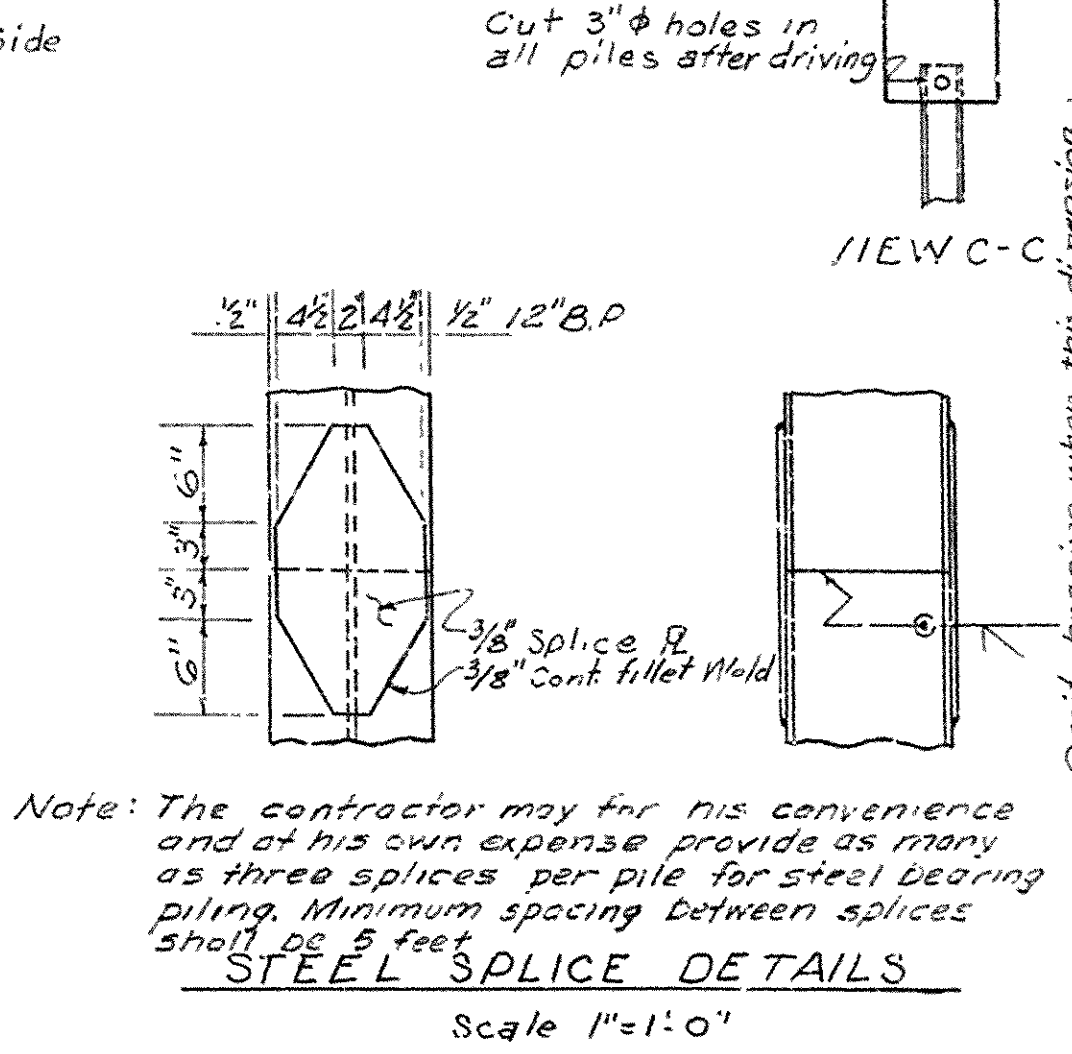 Side
Cut 3"φ holes in
all piles after driving
VIEW C-C
when this dimension
½" 4½ 2" 4½" ½" 12"B.P
6"
3"
3"
6"
3/8" Splice PL
3/8" Cont. fillet Weld
Note: The contractor may for his convenience
and at his own expense provide as many
as three splices per pile for steel bearing
piling. Minimum spacing between splices
shall be 5 feet
STEEL SPLICE DETAILS
Scale 1"=1'-0"